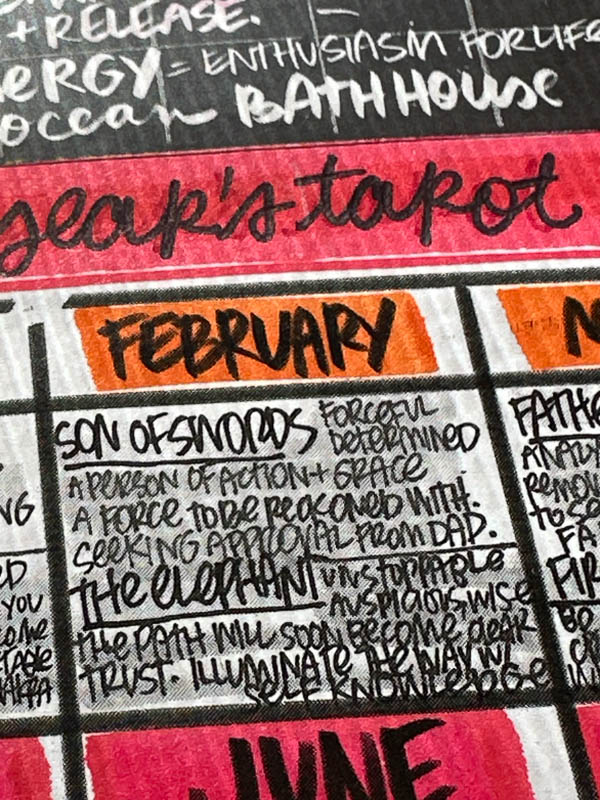 + RELEASE.
= ENTHUSIASM FOR LIFE
ocean BATHHOUSE
year's tarot
FEBRUARY
SON OF SWORDS FORCEFUL
DETERMINED
A PERSON OF ACTION + GRACE
A FORCE TO BE RECKONED WITH.
SEEKING APPROVAL FROM DAD.
THE ELEPHANT UNSTOPPABLE
AUSPICIOUS, WISE
THE PATH WILL SOON BECOME CLEAR
TRUST. ILLUMINATE THE WAY W/
SELF KNOWLEDGE
YOU
JUNE